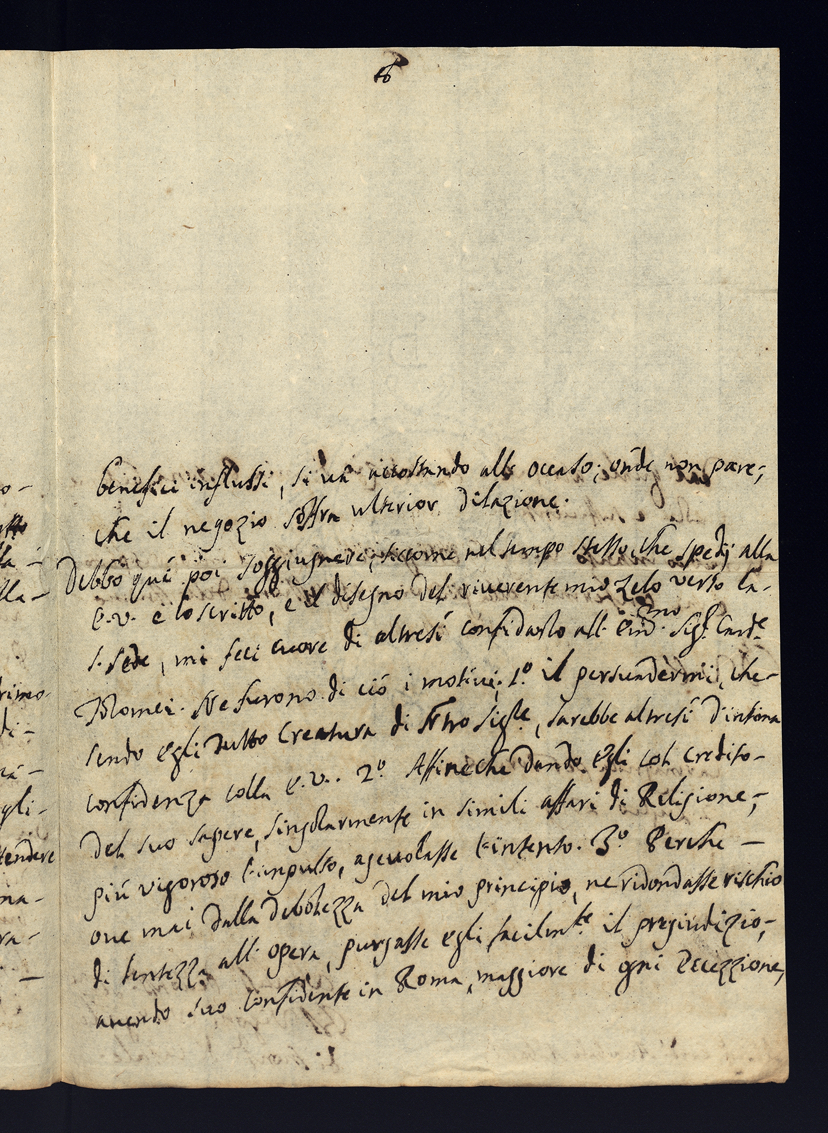 16
benefici influssi, si và accostando all' occaso; onde non pare,
che il negozio soffra ulterior dilazione.
Debbo quì poi soggiugnere, siccome nel tempo stesso, che spedij alla
E.V. e lo scritto, e il disegno del riverente mio Zelo verso la
S. Sede, mi feci cuore di altresì confidarlo all' Em.mo Sig.r Card.e
Tolomei. Ne furono di ciò i motivi, 1.o il persuadermi, che
sendo egli tutto Creatura di Sig.re, sarebbe altresì d'intima
confidenza colla E.V.. 2.o Affinechè dando egli col credito
del suo sapere, singolarmente in simili affari di Religione,
più vigoroso l'impulso, agevolasse l'intento. 3.o Perche
ove mai dalla debolezza del mio principio, ne ridondasse rischio
di lentezza all' opera, purgasse egli facilm.te il pregiudizio,
avendo suo Confidente in Roma, maggiore di ogni Eccezzione,
o-
lla-
primo
di-
gli-
tendere
na-
ra-